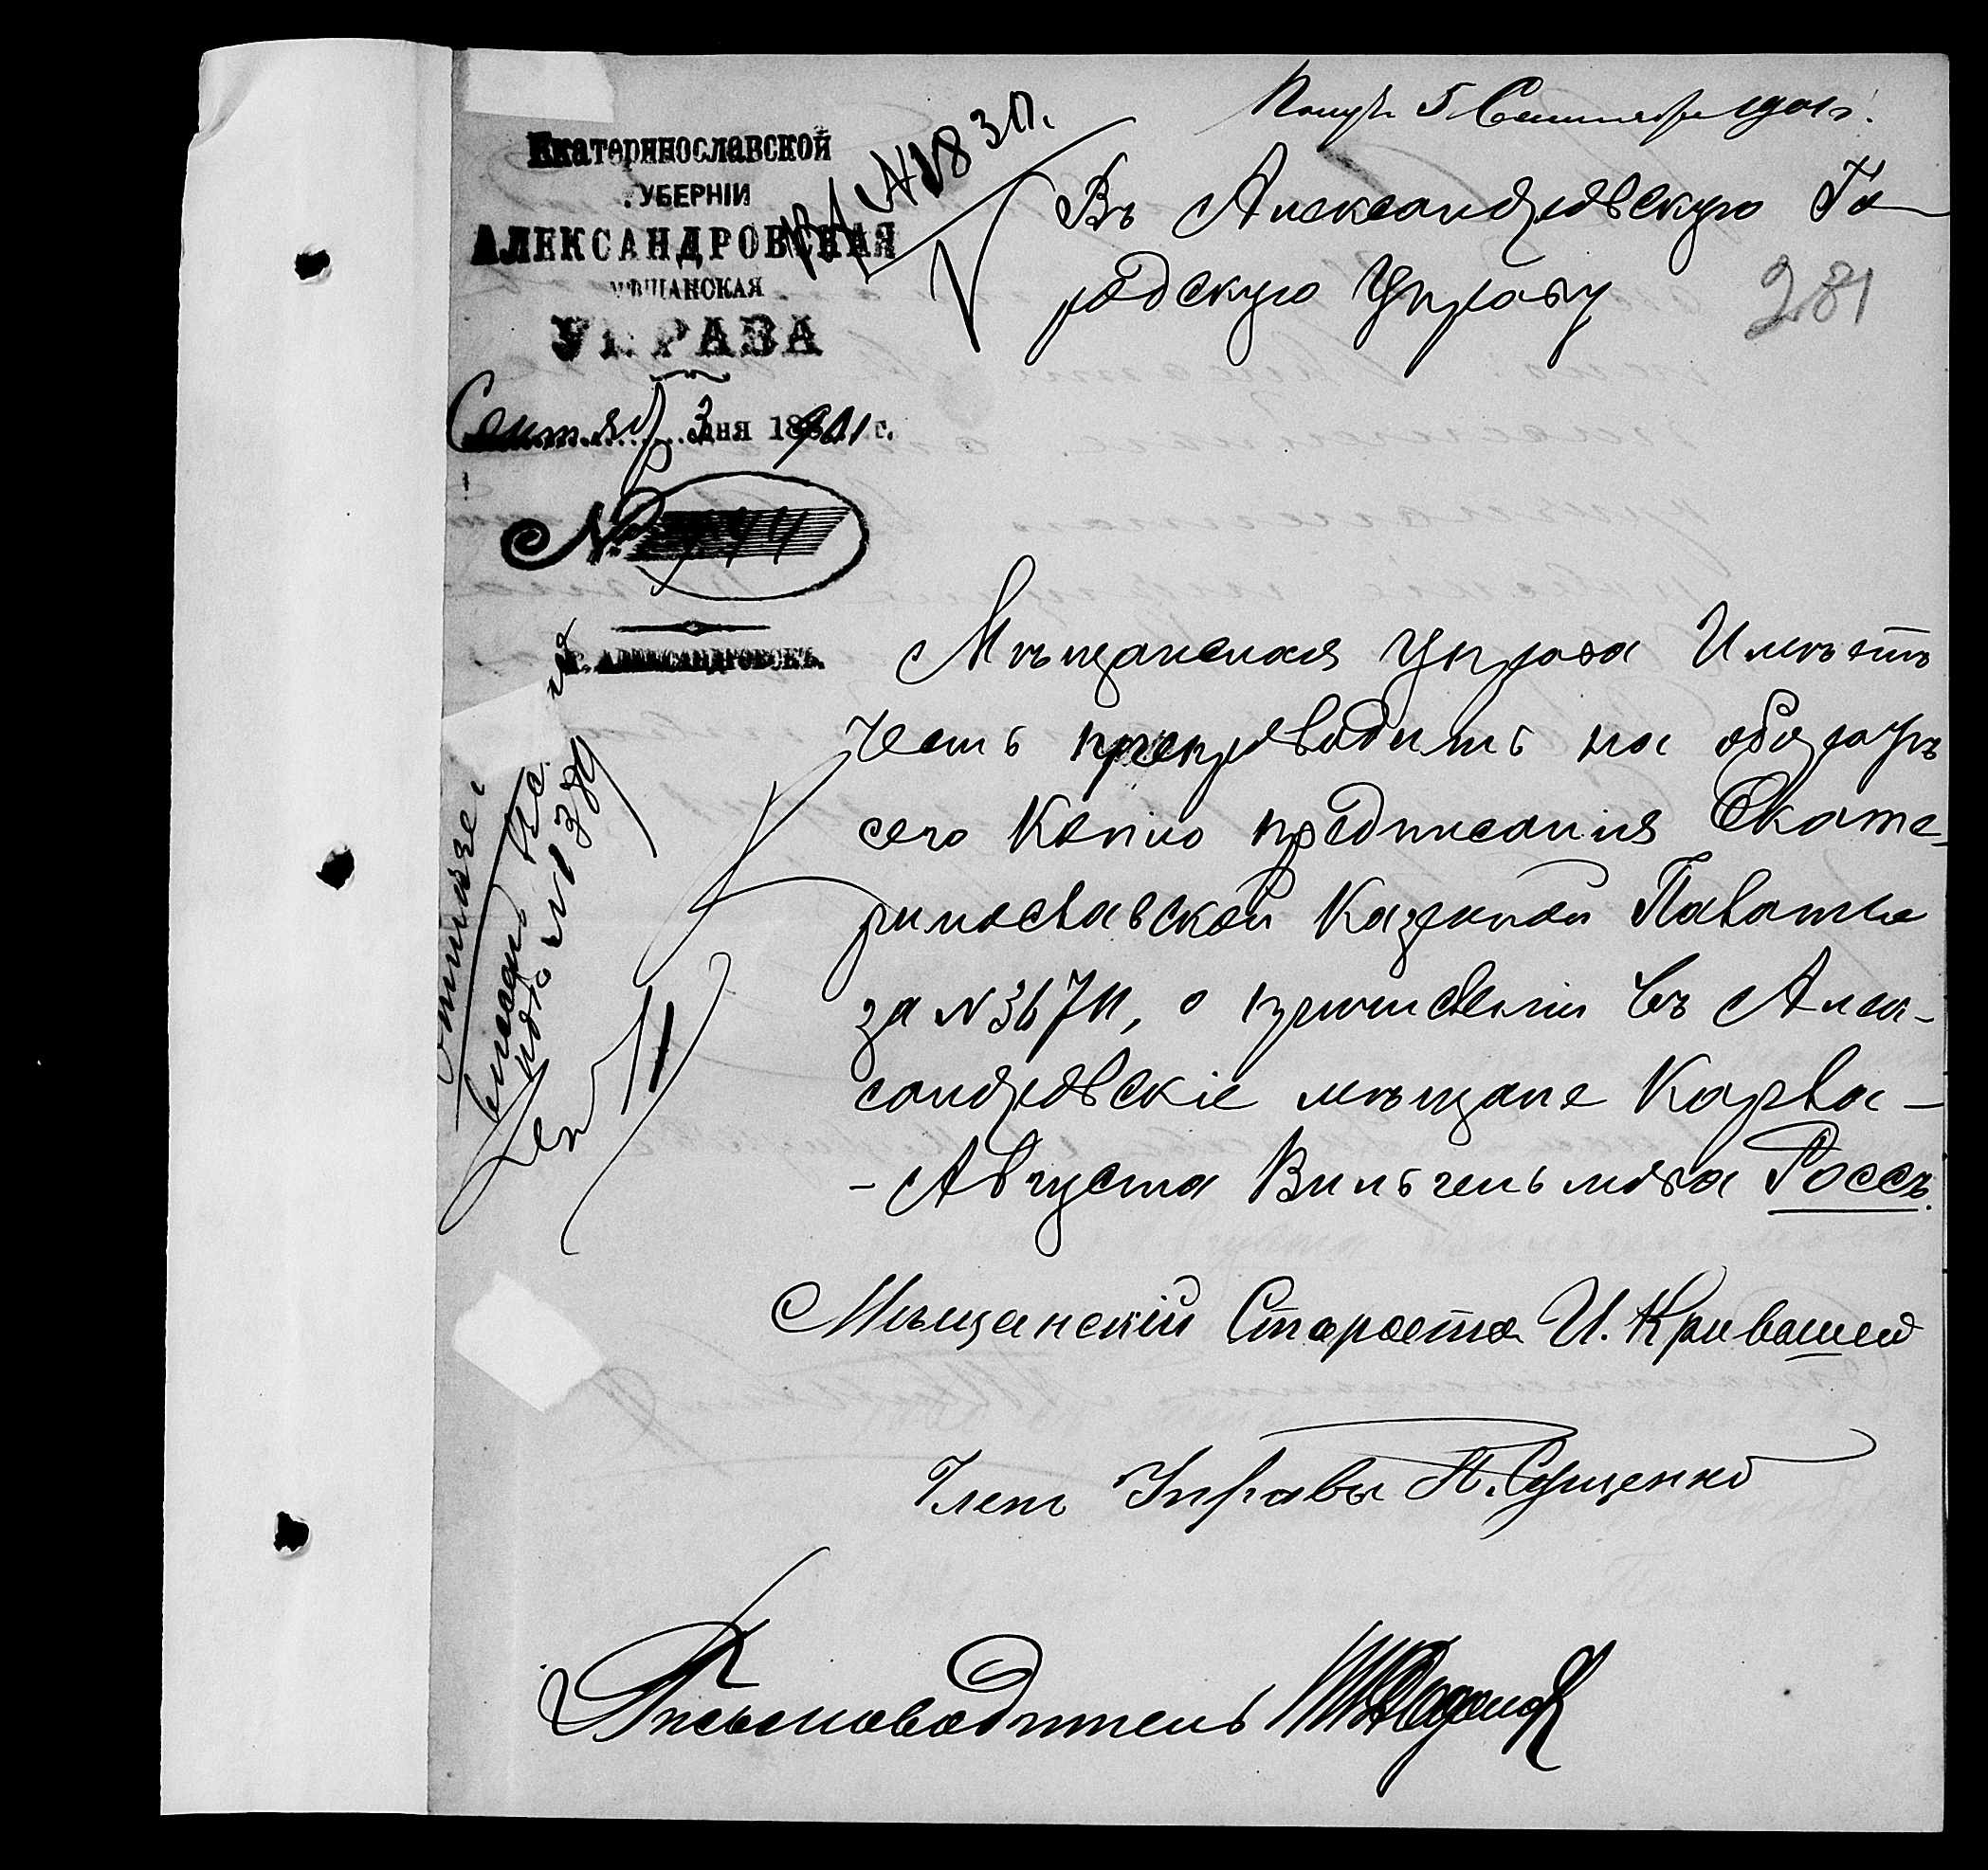 5 Сентября 1901 г.
Екатеринославской
ГУБЕРНІИ
АЛЕКСАНДРОВСКАЯ
МѢЩАНСКАЯ
УПРАВА
Сентяб 3 дня 1901 г.
№
Г. АЛЕКСАНДРОВСКЪ.
Въ Александровскую Го-
родскую Управу
281
Мѣщанская Управа Имѣетъ
честь препроводить на обороте
сего Копию предписания Екате-
ринославской Казенной Палаты
за № 3671, о причислении въ Алек-
сандровскіе мѣщане Карла-
- Августа Вильгельмова Россъ.
Мѣщанскій Староста И.
Членъ Управы П. Сущенко
Письмоводитель